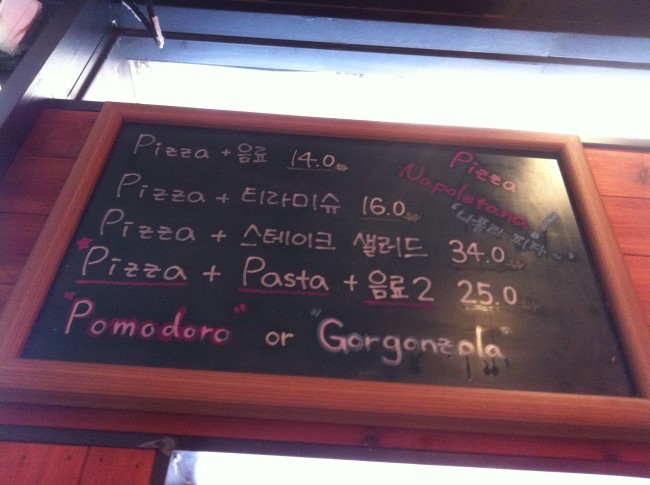 Pizza + 음료 14.0
Pizza
Napoletana!
"나폴리 피자~"
Pizza + 티라미슈 16.0
Pizza + 스테이크 샐러드 34.0
*Pizza + Pasta + 음료2 25.0
"Pomodoro" or "Gorgonzola"